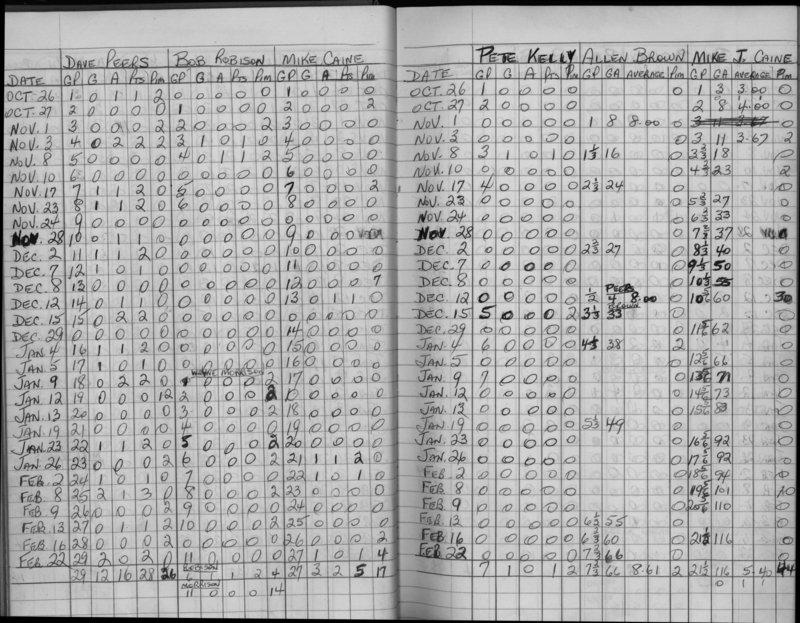 DAVE PEERS BOB ROBISON MIKE CAINE
DATE GP G A Pts Pim GP G A Pts Pim GP G A Pts Pim
OCT. 26 1 0 1 1 2 0 0 0 0 0 1 0 0 0 0
OCT. 27 2 0 0 0 0 1 0 0 0 0 2 0 0 0 2
NOV. 1 3 0 0 0 2 2 0 0 0 2 3 0 0 0 0
NOV. 3 4 0 2 2 2 3 1 0 1 0 4 0 0 0 0
NOV. 8 5 0 0 0 0 4 0 1 1 2 5 0 0 0 0
NOV. 10 6 0 0 0 0 0 0 0 0 0 6 0 0 0 0
NOV. 17 7 1 1 2 0 5 0 0 0 0 7 0 0 0 2
NOV. 23 8 1 1 2 0 6 0 0 0 0 8 0 0 0 0
NOV. 24 9 0 0 0 0 0 0 0 0 0 0 0 0 0 0
NOV. 28 10 0 1 1 0 0 0 0 0 0 9 0 0 0
DEC. 2 11 1 1 2 0 0 0 0 0 0 10 0 0 0 0
DEC. 7 12 1 0 1 0 0 0 0 0 0 11 0 0 0 0
DEC. 8 13 0 0 0 0 0 0 0 0 0 12 0 0 0 7
DEC. 12 14 0 1 1 0 0 0 0 0 0 13 0 1 1 0
DEC. 15 15 0 2 2 0 0 0 0 0 0 0 0 0 0 0
DEC. 29 0 0 0 0 0 0 0 0 0 0 14 0 0 0 0
JAN. 4 16 1 1 2 0 0 0 0 0 0 15 0 0 0 0
JAN. 5 17 1 0 1 0 0 0 0 0 0 16 0 0 0 0
WAYNE MORRISON
JAN. 9 18 0 2 2 0 1 0 0 0 2 17 0 0 0 0
JAN. 12 19 0 0 0 12 2 0 0 0 2 0 0 0 0
JAN. 13 20 0 0 0 0 3 0 0 0 2 18 0 0 0 0
JAN. 19 21 0 0 0 0 4 0 0 0 0 19 0 0 0 0
JAN. 23 22 1 1 2 0 5 0 0 0 2 20 0 0 0 0
JAN. 26 23 0 0 0 2 6 0 0 0 2 21 1 1 2 0
FEB. 2 24 1 0 1 0 7 0 0 0 0 22 1 0 1 0
FEB. 8 25 2 1 3 0 8 0 0 0 2 23 0 0 0 0
FEB. 9 26 0 0 0 2 9 0 0 0 0 24 0 0 0 0
FEB. 13 27 0 1 1 2 10 0 0 0 2 25 0 0 0 0
FEB. 16 28 0 0 0 2 0 0 0 0 0 26 0 0 0 2
FEB. 22 29 2 0 2 0 11 0 0 0 0 27 1 0 1 4
ROBISON
29 12 16 28 26 6 1 1 2 4 27 3 2 5 17
MORRISON
11 0 0 0 14
PETE KELLY ALLEN BROWN MIKE J. CAINE
DATE GP G A Pts Pim GP GA AVERAGE Pim GP GA AVERAGE Pim
OCT. 26 1 0 0 0 0 0 1 3 3.00 0
OCT. 27 2 0 0 0 0 0 2 8 4.00 0
NOV. 1 0 0 0 0 0 1 8 8.00 0 3 11 3.67
NOV. 3 0 0 0 0 0 0 3 11 3.67 2
NOV. 8 3 1 0 1 0 1⅔ 16 0 3⅔ 18 0
NOV. 10 0 0 0 0 0 0 4⅔ 23 2
NOV. 17 4 0 0 0 0 2⅔ 24 0 0
NOV. 23 0 0 0 0 0 0 5⅔ 27 0
NOV. 24 0 0 0 0 0 0 6⅔ 33 0
NOV. 28 0 0 0 0 0 0 7⅔ 37
DEC. 2 0 0 0 0 0 2⅔ 27 0 8⅓ 40 0
DEC. 7 0 0 0 0 0 0 9⅓ 50 0
DEC. 8 0 0 0 0 0 0 10⅓ 55 0
PEERS
DEC. 12 0 0 0 0 0 ½ 4 8.00 0 10⅚ 60 30
BROWN
DEC. 15 5 0 0 0 2 3⅓ 33 0 0
DEC. 29 0 0 0 0 0 0 11⅚ 62 0
JAN. 4 6 0 0 0 0 4⅓ 38 2 0
JAN. 5 0 0 0 0 0 0 12⅚ 66 0
JAN. 9 7 0 0 0 0 0 13⅚ 71 0
JAN. 12 0 0 0 0 0 0 14⅚ 73 0
JAN. 13 0 0 0 0 0 0 15⅚ 0
JAN. 19 0 0 0 0 0 5⅓ 49 0 0
JAN. 23 0 0 0 0 0 0 16⅚ 92 0
JAN. 26 0 0 0 0 0 0 17⅚ 92 0
FEB. 2 0 0 0 0 0 0 18⅚ 94 0
FEB. 8 0 0 0 0 0 0 19⅚ 101 0
FEB. 9 0 0 0 0 0 0 20⅚ 110 0
FEB. 13 0 0 0 0 0 6⅓ 55 0 0
FEB. 16 0 0 0 0 0 6⅔ 60 0 21½ 116 0
FEB. 22 0 0 0 0 0 7⅔ 66 0 0
7 1 0 1 2 7⅔ 66 8.61 2 21½ 116 5.40
0 1 1